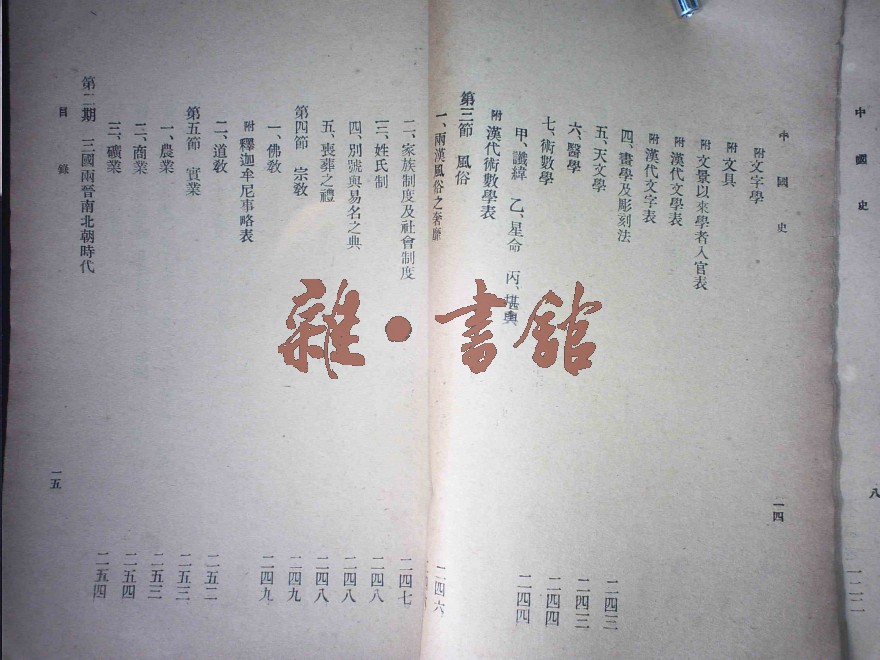 中國史
八
中國史
一四
附 文字學
附 文具
附 文景以來學者入官表
附 漢代文學表
附 漢代文字表
四、畫學及彫刻法
五、天文學 二四三
六、醫學 二四三
七、術數學 二四四
甲、讖緯 乙、星命 丙、堪輿 二四四
附 漢代術數學表
第三節 風俗
一、兩漢風俗之奢靡 二四六
二、家族制度及社會制度 二四七
三、姓氏制 二四八
四、別號與易名之典 二四八
五、喪葬之禮 二四八
第四節 宗教 二四九
一、佛教 二四九
附 釋迦牟尼事略表
二、道教 二五二
第五節 實業 二五三
一、農業 二五三
二、商業 二五四
三、礦業 二五四
第二期 三國兩晉南北朝時代
目錄
一五
雜·書館